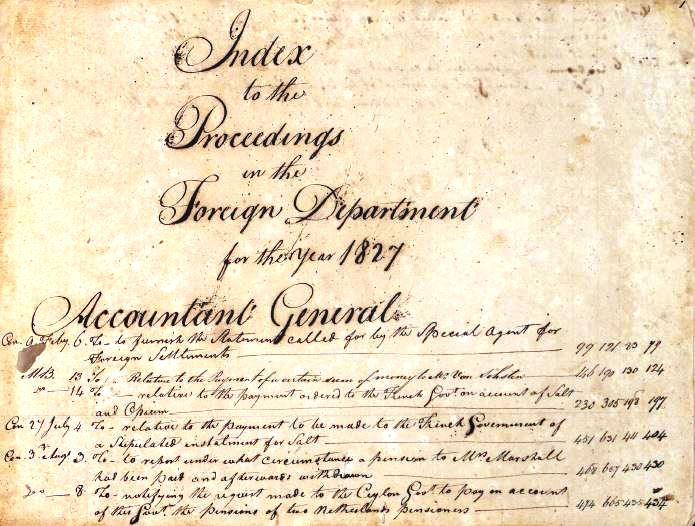 Index
to the
Proceedings
in the
Foreign Department
for the Year 1827
Accountant General
Con. 9 Feby. 6. To - to furnish the Statement called for by the Special Agent for
Foreign Settlements 99 121 23 79
13 To - Relative to the Payment of a certain sum of money to Mr. Van 446 190 130 124
14 To - relative to the payment ordered to the French Govt. on account of Salt
and Opium 230 305 198 197
Con 27 July 4 To - relative to the payment to be made to the French Government of
a Stipulated instalment for Salt 451 631 411 404
Con. 3rd Augt. 3. To - to report under what circumstances a pension to Mrs Marshall
had been paid and afterwards withdrawn 468 657 430 430
Do 8. To - notifying the request made to the Ceylon Govt. to pay on account
of this Govt. the pensions of two Netherlands pensioners 474 665 435 434